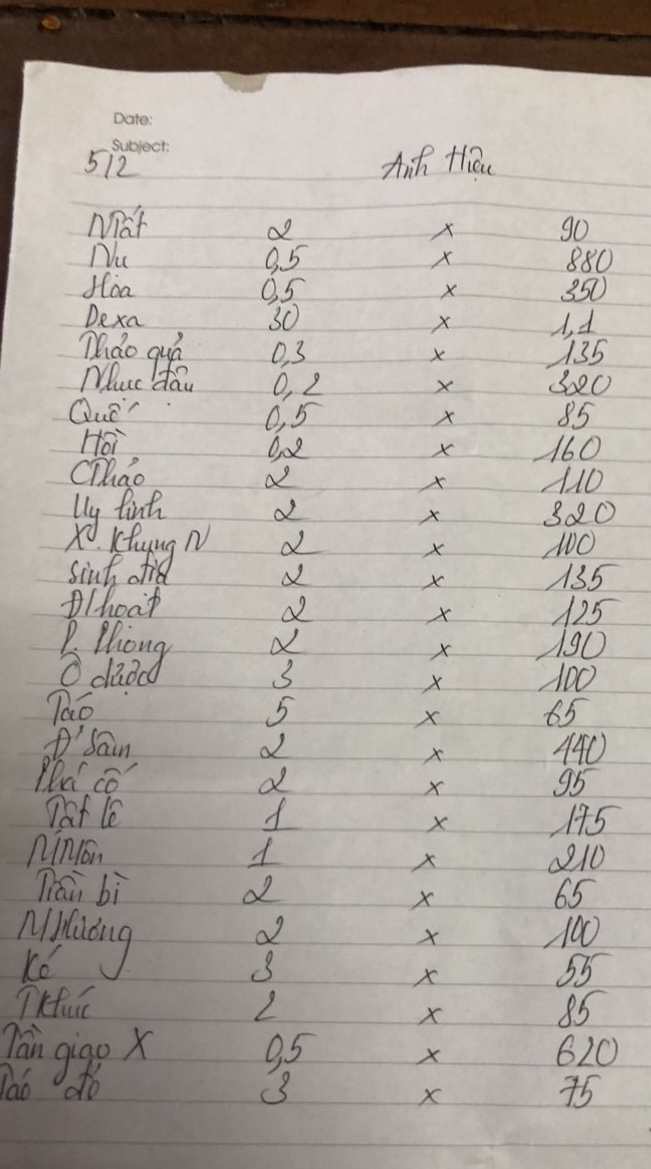 Date:
Subject:
5/2 Anh Hiệu
Nhất 2 x 90
Nu 0,5 x 880
Hòa 0,5 x 350
Dexa 30 x 1,1
Thảo quả 0,3 x 135
Nhục đậu 0,2 x 320
Quế 0,5 x 85
Hồi 0,2 x 160
CThảo 2 x 110
Uy linh 2 x 320
X. Khung N 2 x 100
Sinh địa 2 x 135
Đ/hoạt 2 x 125
P. Phòng 2 x 190
Ô dược 3 x 100
Táo 5 x 65
Đ' Sâm 2 x 440
Phá cố 2 x 95
Tật lê 1 x 175
MMôn 1 x 210
Trần bì 2 x 65
MHương 2 x 100
Ké 3 x 55
TKhúc 2 x 85
Tần giao X 0,5 x 620
Táo đỏ 3 x 75